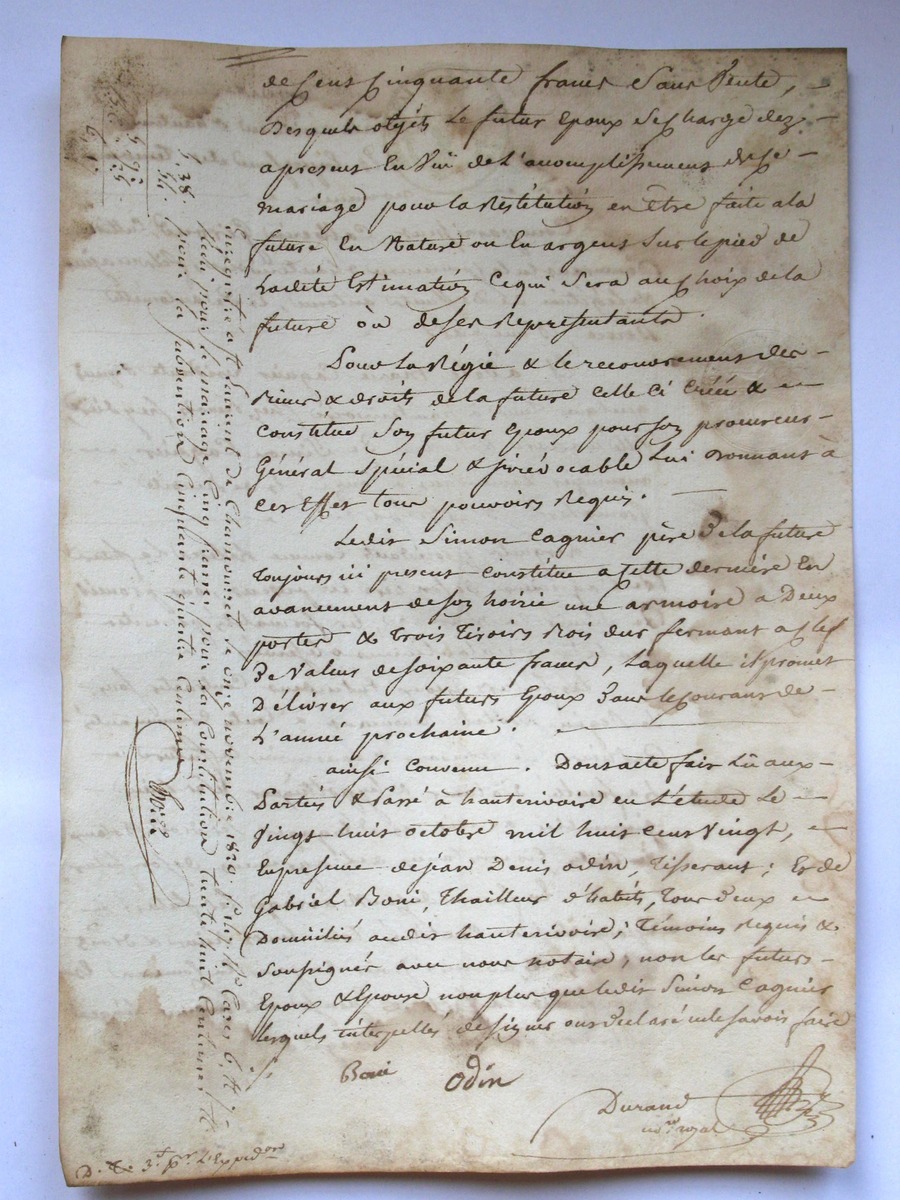 de Cens Cinquante francs Sans Pente,
Desquels objets Le futur Epoux se Charge dez
apresent En Vuë de L'acomplissement duse
mariage pour la Restitution en être faite ala
future En Nature ou En argens Sur le pied de
Ladéte Estimation Cequi Sera au Choix de la
future où de ses Représentants.
Pour la Régie & le recouvrement des
Biens & droits de la future Celle Ci Créé &
Constitue Son futur Epoux pour Son procureur
Général Spécial & irrévocable Lui Donnant à
Ces Effet tous pouvoirs Requis.
Ledit Simon Cagnier père de la future
Toujours ici present Constitue a Cette derniére En
avancement de Son hoirie une armoire a Deux
portes & Trois Tiroirs Bois dur fermant a Clef
De Valeur de Soixante francs, Laquelle il promet
Délivrer aux futurs Epoux Dans le Courant de
L'année prochaine.
ainsi Convenu. Dont acte fait Lû aux
Parties & Passé à hauterivoire en L'étude Le
Vingt huit octobre mil huit cens Vingt,
En presence de jean Denis odin, Tisserant; Et de
Gabriel Boni, Thailleur d'habits, Tous Deux
Domiciliés audit hauterivoire; Témoins Requis &
Soussignés avec nous notaire, non les futurs
Epoux & Epouse non plus que ledit Simon Cagnier
Lesquels intérpellés de signer ont déclaré ne le savoir faire
Boni Odin
Durand
nore royal
D. & 3t pr L'Expedon
Enregistré à St Laurent de Chamousset le onze novembre 1820.
Reçu pour le mariage Cinq francs pour la Constitution trente huit Centimes &
pour la Subvention Cinquante quatre Centimes
5, 38
54